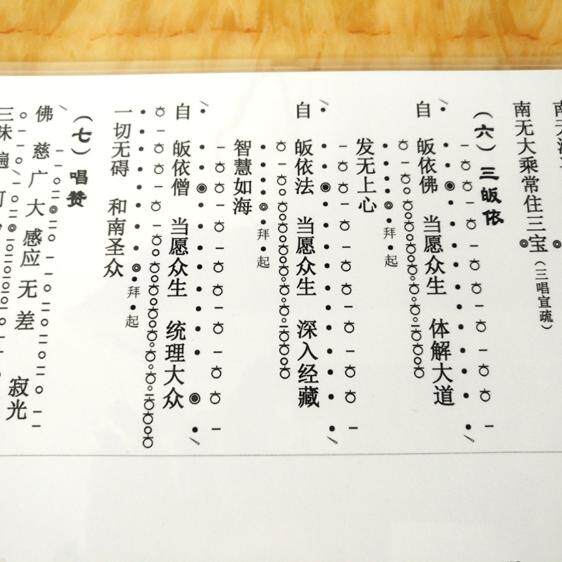 南无大乘常住三宝(三唱宣疏)
(六)三皈依
自 皈依佛 当愿众生 体解大道
发无上心 拜 起
自 皈依法 当愿众生 深入经藏
智慧如海 拜 起
自 皈依僧 当愿众生 统理大众
一切无碍 和南圣众 拜 起
(七)唱赞
佛慈广大感应无差 寂光
三昧遍